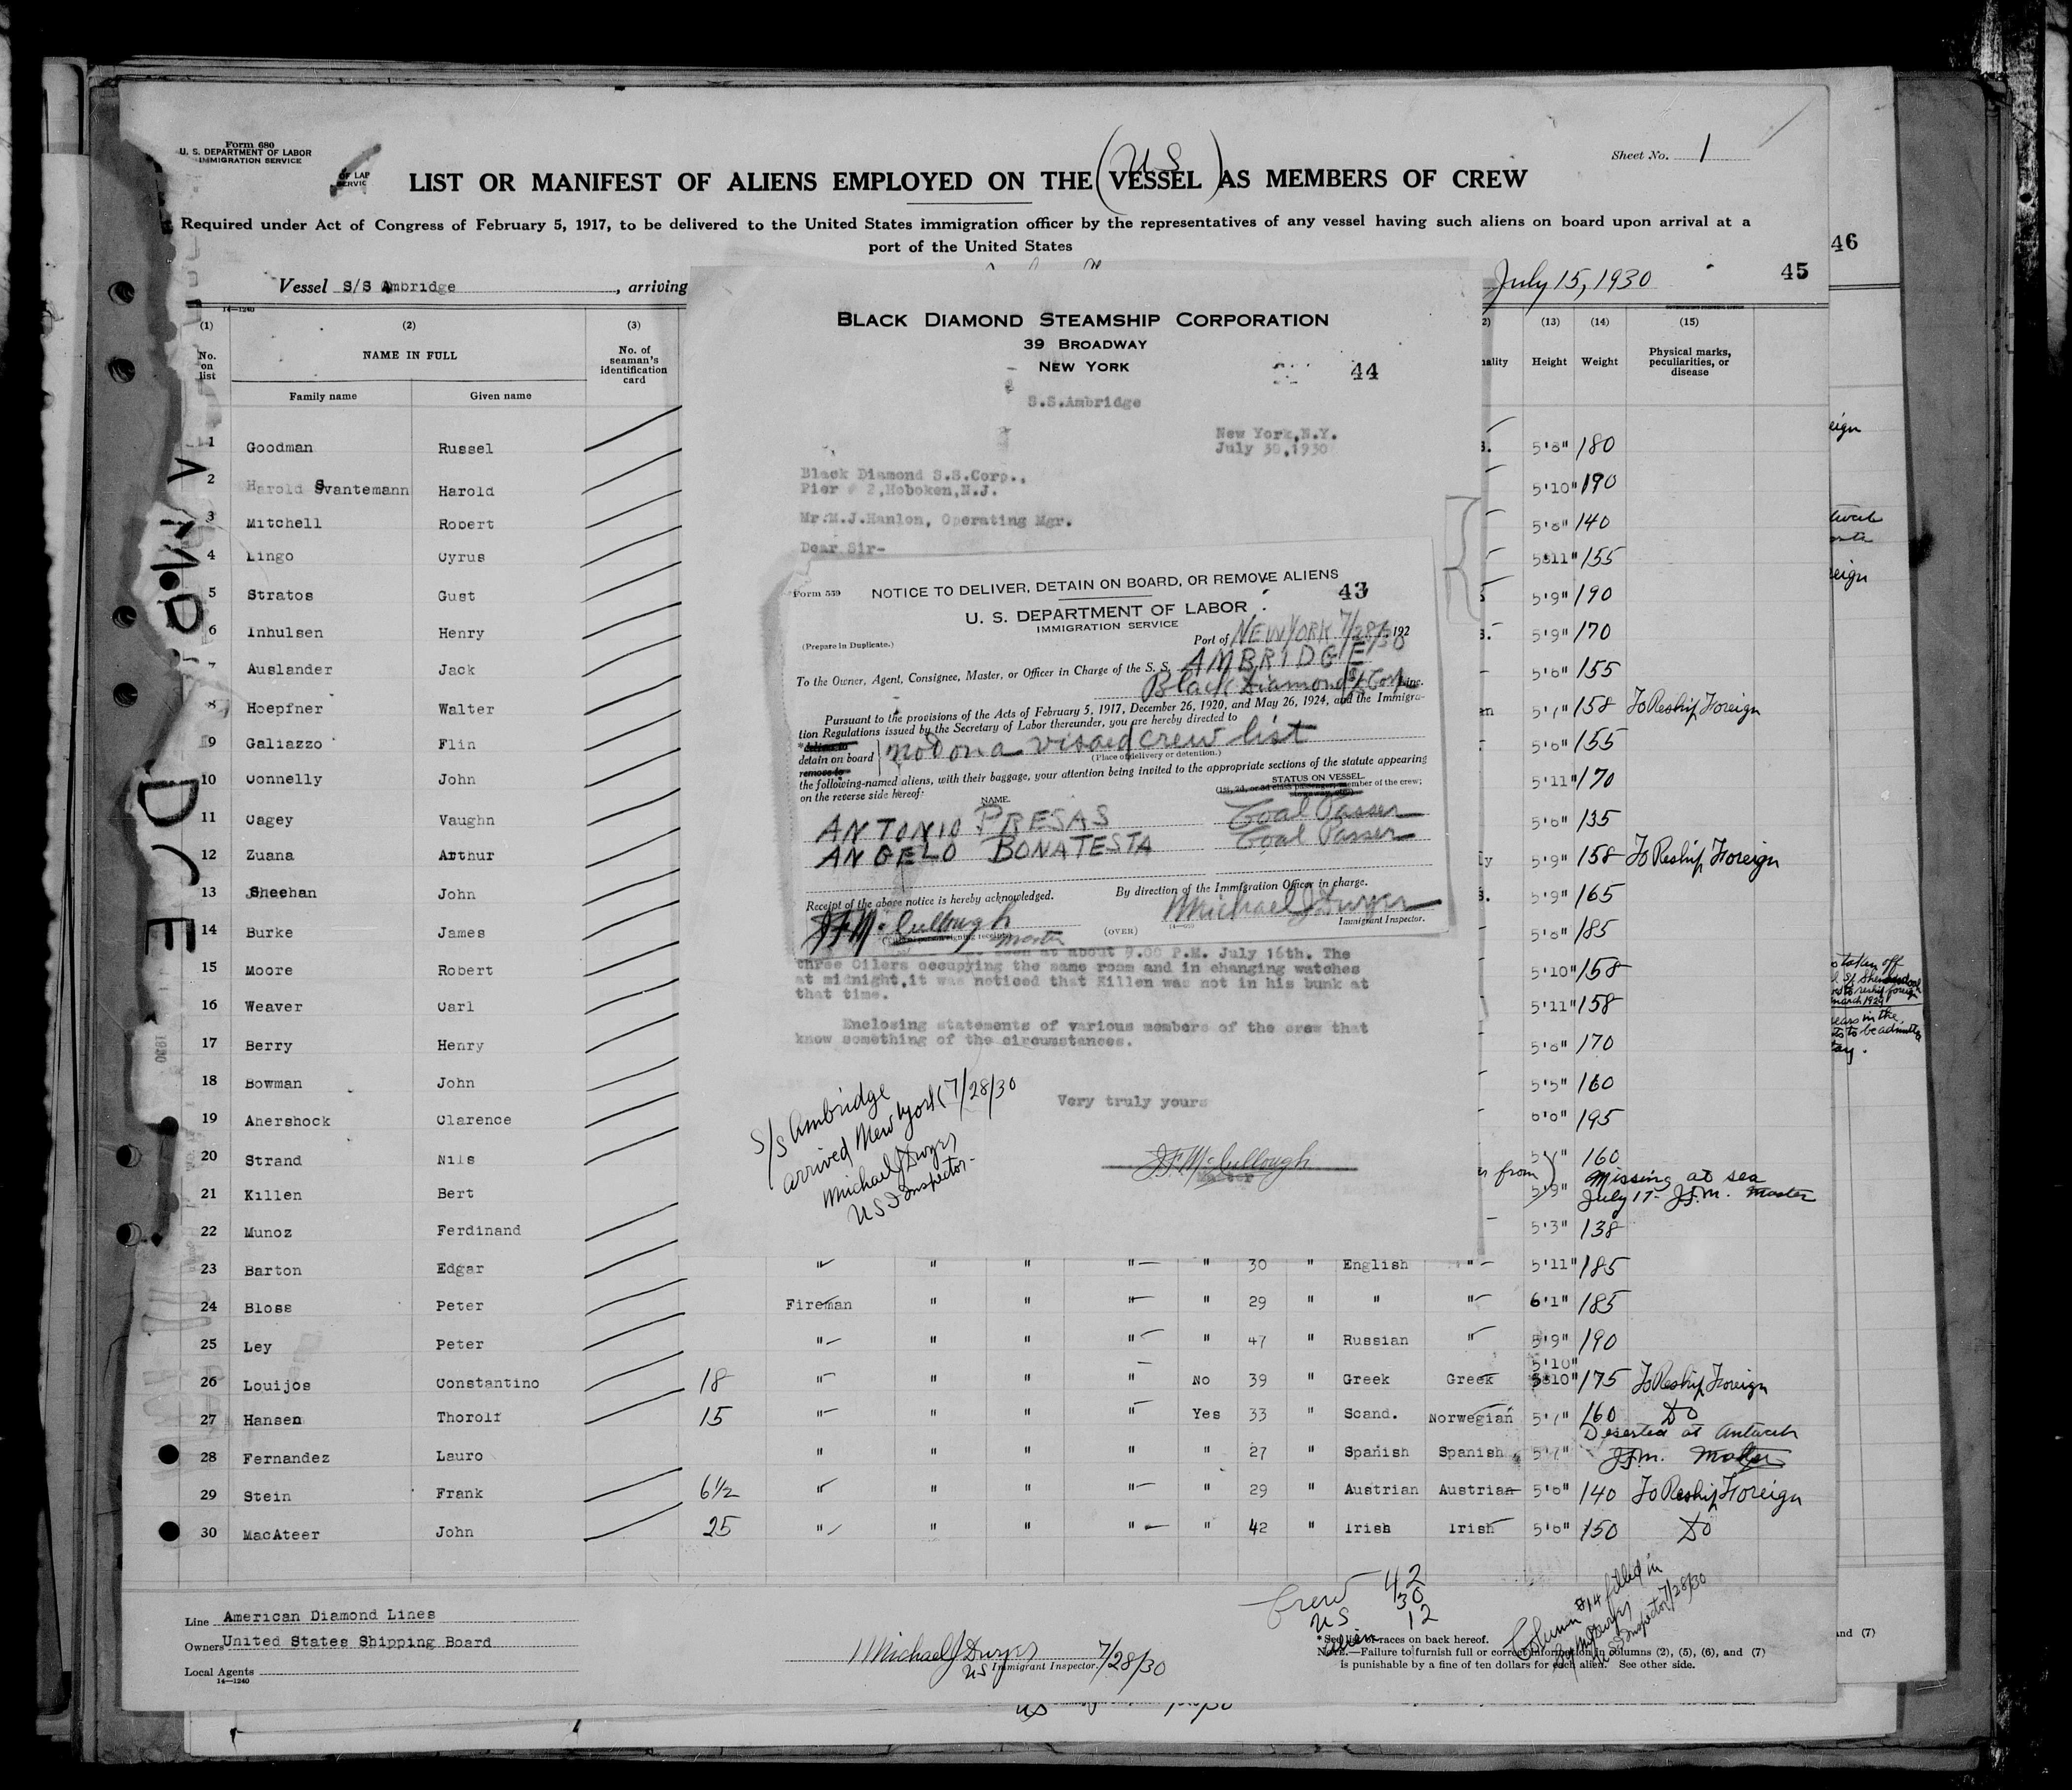 Form 680
U. S. DEPARTMENT OF LABOR
IMMIGRATION SERVICE
Sheet No. 1
(US)
LIST OR MANIFEST OF ALIENS EMPLOYED ON THE VESSEL AS MEMBERS OF CREW
Required under Act of Congress of February 5, 1917, to be delivered to the United States immigration officer by the representatives of any vessel having such aliens on board upon arrival at a
port of the United States
46
Vessel S/S Ambridge, arriving
July 15, 1930
45
14—1240
(1) (2) (3)
No. on list
NAME IN FULL
Family name Given name
No. of seaman's identification card
(13) (14) (15)
Height Weight Physical marks, peculiarities, or disease
1 Goodman Russel 5'8" 180
2 Harold Svantemann Harold 5'10" 190
3 Mitchell Robert 5'8" 140
4 Lingo Cyrus 5'11" 155
5 Stratos Gust 5'9" 190
6 Inhulsen Henry 5'9" 170
7 Auslander Jack 155
8 Hoepfner Walter 5'7" 158 To Reship Foreign
9 Galiazzo Flin 155
10 Connelly John 5'11" 170
11 Cagey Vaughn 135
12 Zuana Arthur 5'9" 158 To Reship Foreign
13 Sheehan John 5'9" 165
14 Burke James 185
15 Moore Robert 5'10" 158
16 Weaver Carl 5'11" 158
17 Berry Henry 170
18 Bowman John 5'5" 160
19 Ahershock Clarence 195
20 Strand Nils 160
21 Killen Bert 5'9" Missing at sea
July 17- J.F.M. Master
22 Munoz Ferdinand 5'3" 138
23 Barton Edgar " " " " " 30 " English " 5'11" 185
24 Bloss Peter Fireman " " " " 29 " " " 6'1" 185
25 Ley Peter " " " " " 47 " Russian " 5'9" 190
26 Louijos Constantino 18 " " " " No 39 " Greek Greek 5'10" 175 To Reship Foreign
27 Hansen Thorolf 15 " " " " Yes 33 " Scand. Norwegian 5'7" 160 Do
28 Fernandez Lauro " " " " " 27 " Spanish Spanish 5'7" Deserted at Antwerp
J.F.M. Master
29 Stein Frank 6½ " " " " " 29 " Austrian Austrian 140 To Reship Foreign
30 MacAteer John 25 " " " " " 42 " Irish Irish 150 Do
BLACK DIAMOND STEAMSHIP CORPORATION
39 BROADWAY
NEW YORK
44
S.S.Ambridge
New York,N.Y.
July 30,1930
Black Diamond S.S.Corp.,
Pier # 2,Hoboken,N.J.
Mr.M.J.Hanlon, Operating Mgr.
Dear Sir-
Form 559
NOTICE TO DELIVER, DETAIN ON BOARD, OR REMOVE ALIENS
43
U. S. DEPARTMENT OF LABOR
IMMIGRATION SERVICE
(Prepare in Duplicate.)
Port of NEW YORK 7/28/30 192
To the Owner, Agent, Consignee, Master, or Officer in Charge of the S. S. AMBRIDGE
Black Diamond SS Corp Line.
Pursuant to the provisions of the Acts of February 5, 1917, December 26, 1920, and May 26, 1924, and the Immigra-
tion Regulations issued by the Secretary of Labor thereunder, you are hereby directed to
*deliver to
detain on board
remove to
not on a visaed crew list
(Place of delivery or detention.)
the following-named aliens, with their baggage, your attention being invited to the appropriate sections of the statute appearing
on the reverse side hereof:
STATUS ON VESSEL.
(1st, 2d, or 3d class passenger, member of the crew;
NAME.
ANTONIO PRESAS Coal Passer
ANGELO BONATESTA Coal Passer
Receipt of the above notice is hereby acknowledged.
By direction of the Immigration Officer in charge.
J F McCullough
Master
(OVER)
Michael J Dwyer
Immigrant Inspector.
seen at about 9.00 P.M. July 16th. The
three Oilers occupying the same room and in changing watches
at midnight,it was noticed that Killen was not in his bunk at
that time.
Enclosing statements of various members of the crew that
know something of the circumstances.
Very truly yours
J.F.McCullough
Master
S/S Ambridge
arrived New York 7/28/30
Michael J Dwyer
US I Inspector
Line American Diamond Lines
Owners United States Shipping Board
Local Agents
14—1240
Michael J Dwyer 7/28/30
US Immigrant Inspector.
Crew 42
US 30
Alien 12
* See list of races on back hereof.
NOTE.—Failure to furnish full or correct information in columns (2), (5), (6), and (7)
is punishable by a fine of ten dollars for each alien. See other side.
Column #14 filled in
by M J Dwyer
US I Inspector 7/28/30
and (7)